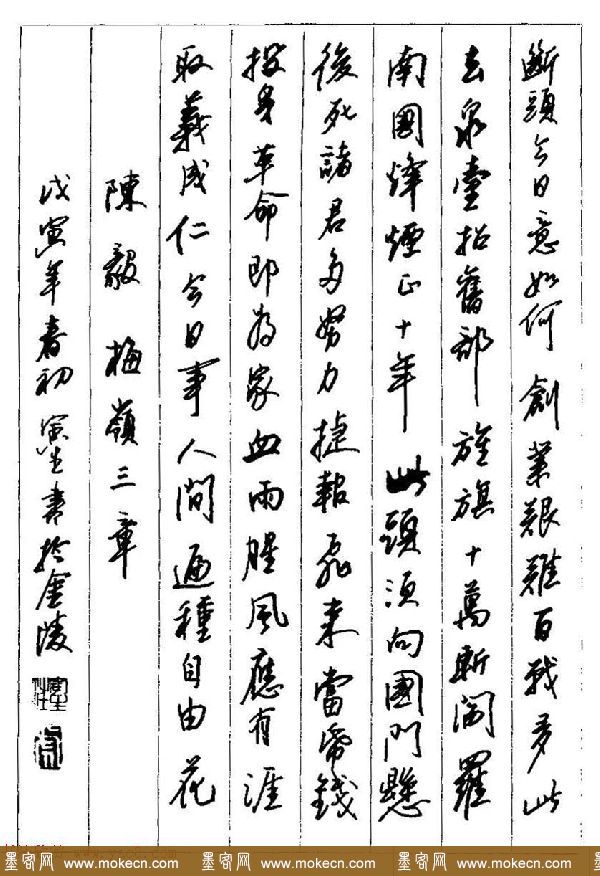 斷頭今日意如何創業艱難百戰多此
去泉臺招舊部旌旗十萬斬閻羅
南國烽煙正十年此頭須向國門懸
後死諸君多努力捷報飛來當帋錢
投身革命即為家血雨腥風應有涯
取義成仁今日事人間遍種自由花
陳毅 梅嶺三章
戊寅年春初 寅生書於金陵
墨客网 www.mokecn.com 墨客网 www.mokecn.com 墨客网 www.mokecn.com